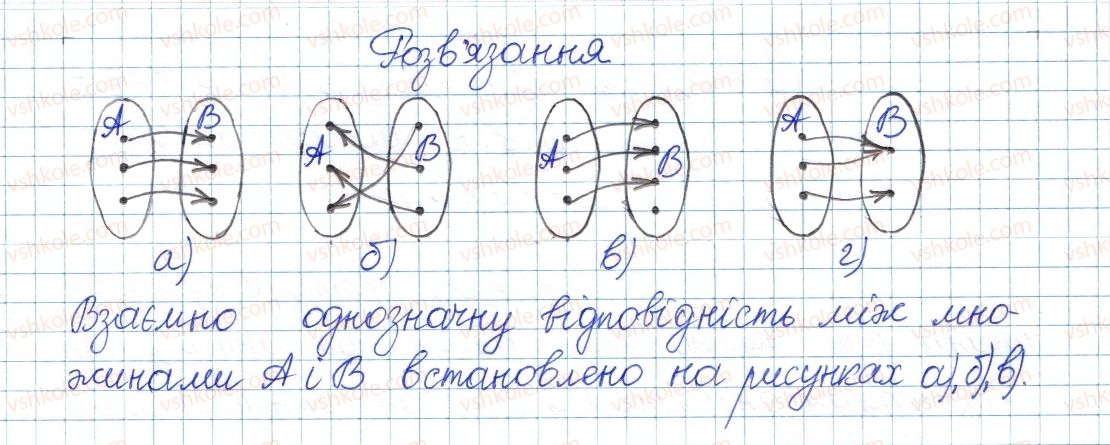 Розв'язання
А В А В А В А В
а) б) в) г)
Взаємно однозначну відповідність між мно-
жинами А і В встановлено на рисунках а), б), в).
vshkole.com